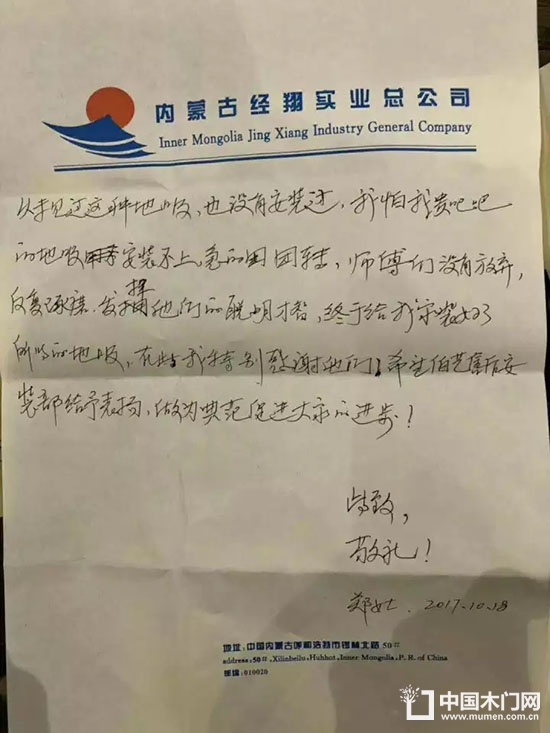 内蒙古经翔实业总公司
Inner Mongolia Jing Xiang Industry General Company
从未见过这种地板,也没有安装过,我怕我贵吧吧
的地板安装不上,急的团团转,师傅们没有放弃,
反复琢磨.发挥他们的聪明才智,终于给我安装好
所有的地板,在此我特别感谢他们!希望伯艺售后安
装部给予表扬,做为典范促进大家的进步!
此致,
敬礼!
郑女士. 2017.10.18
地址:中国内蒙古呼和浩特市锡林北路50#
address: 50#, Xilinbeilu, Huhhot, Inner Mongolia, P. R. of China
邮编:010020
中国木门网
www.mumen.com.cn